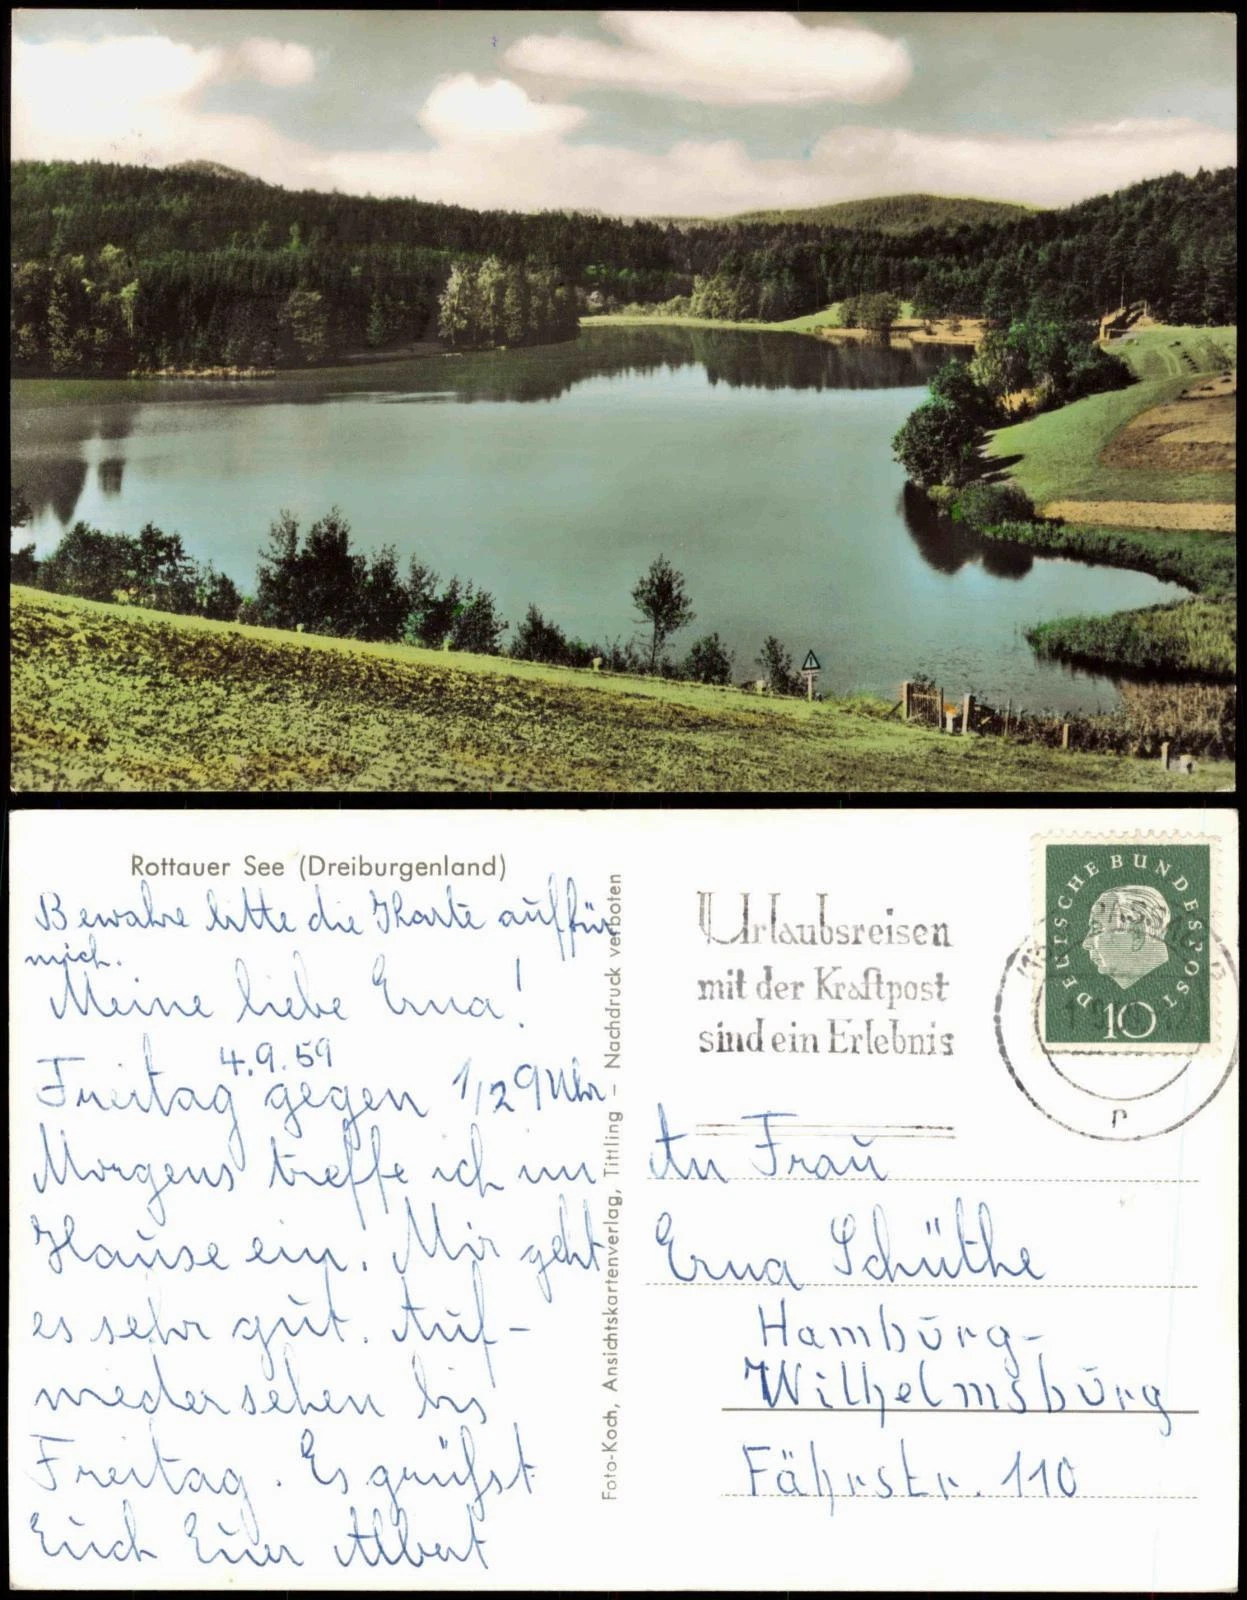 Rottauer See (Dreiburgenland)
Bewahre bitte die Karte auf für
mich.
Meine liebe Erna!
4.9.59
Freitag gegen 1/2 9 Uhr
Morgens treffe ich im
Hause ein. Mir geht
es sehr gut. Auf-
wiedersehen bis
Freitag. Es grüßt
Euch Euer Albert
Foto-Koch, Ansichtskartenverlag, Tittling – Nachdruck verboten
Urlaubsreisen
mit der Kraftpost
sind ein Erlebnis
DEUTSCHE BUNDESPOST
10
r
An Frau
Erna Schüthe
Hamburg-
Wilhelmsburg
Fährstr. 110